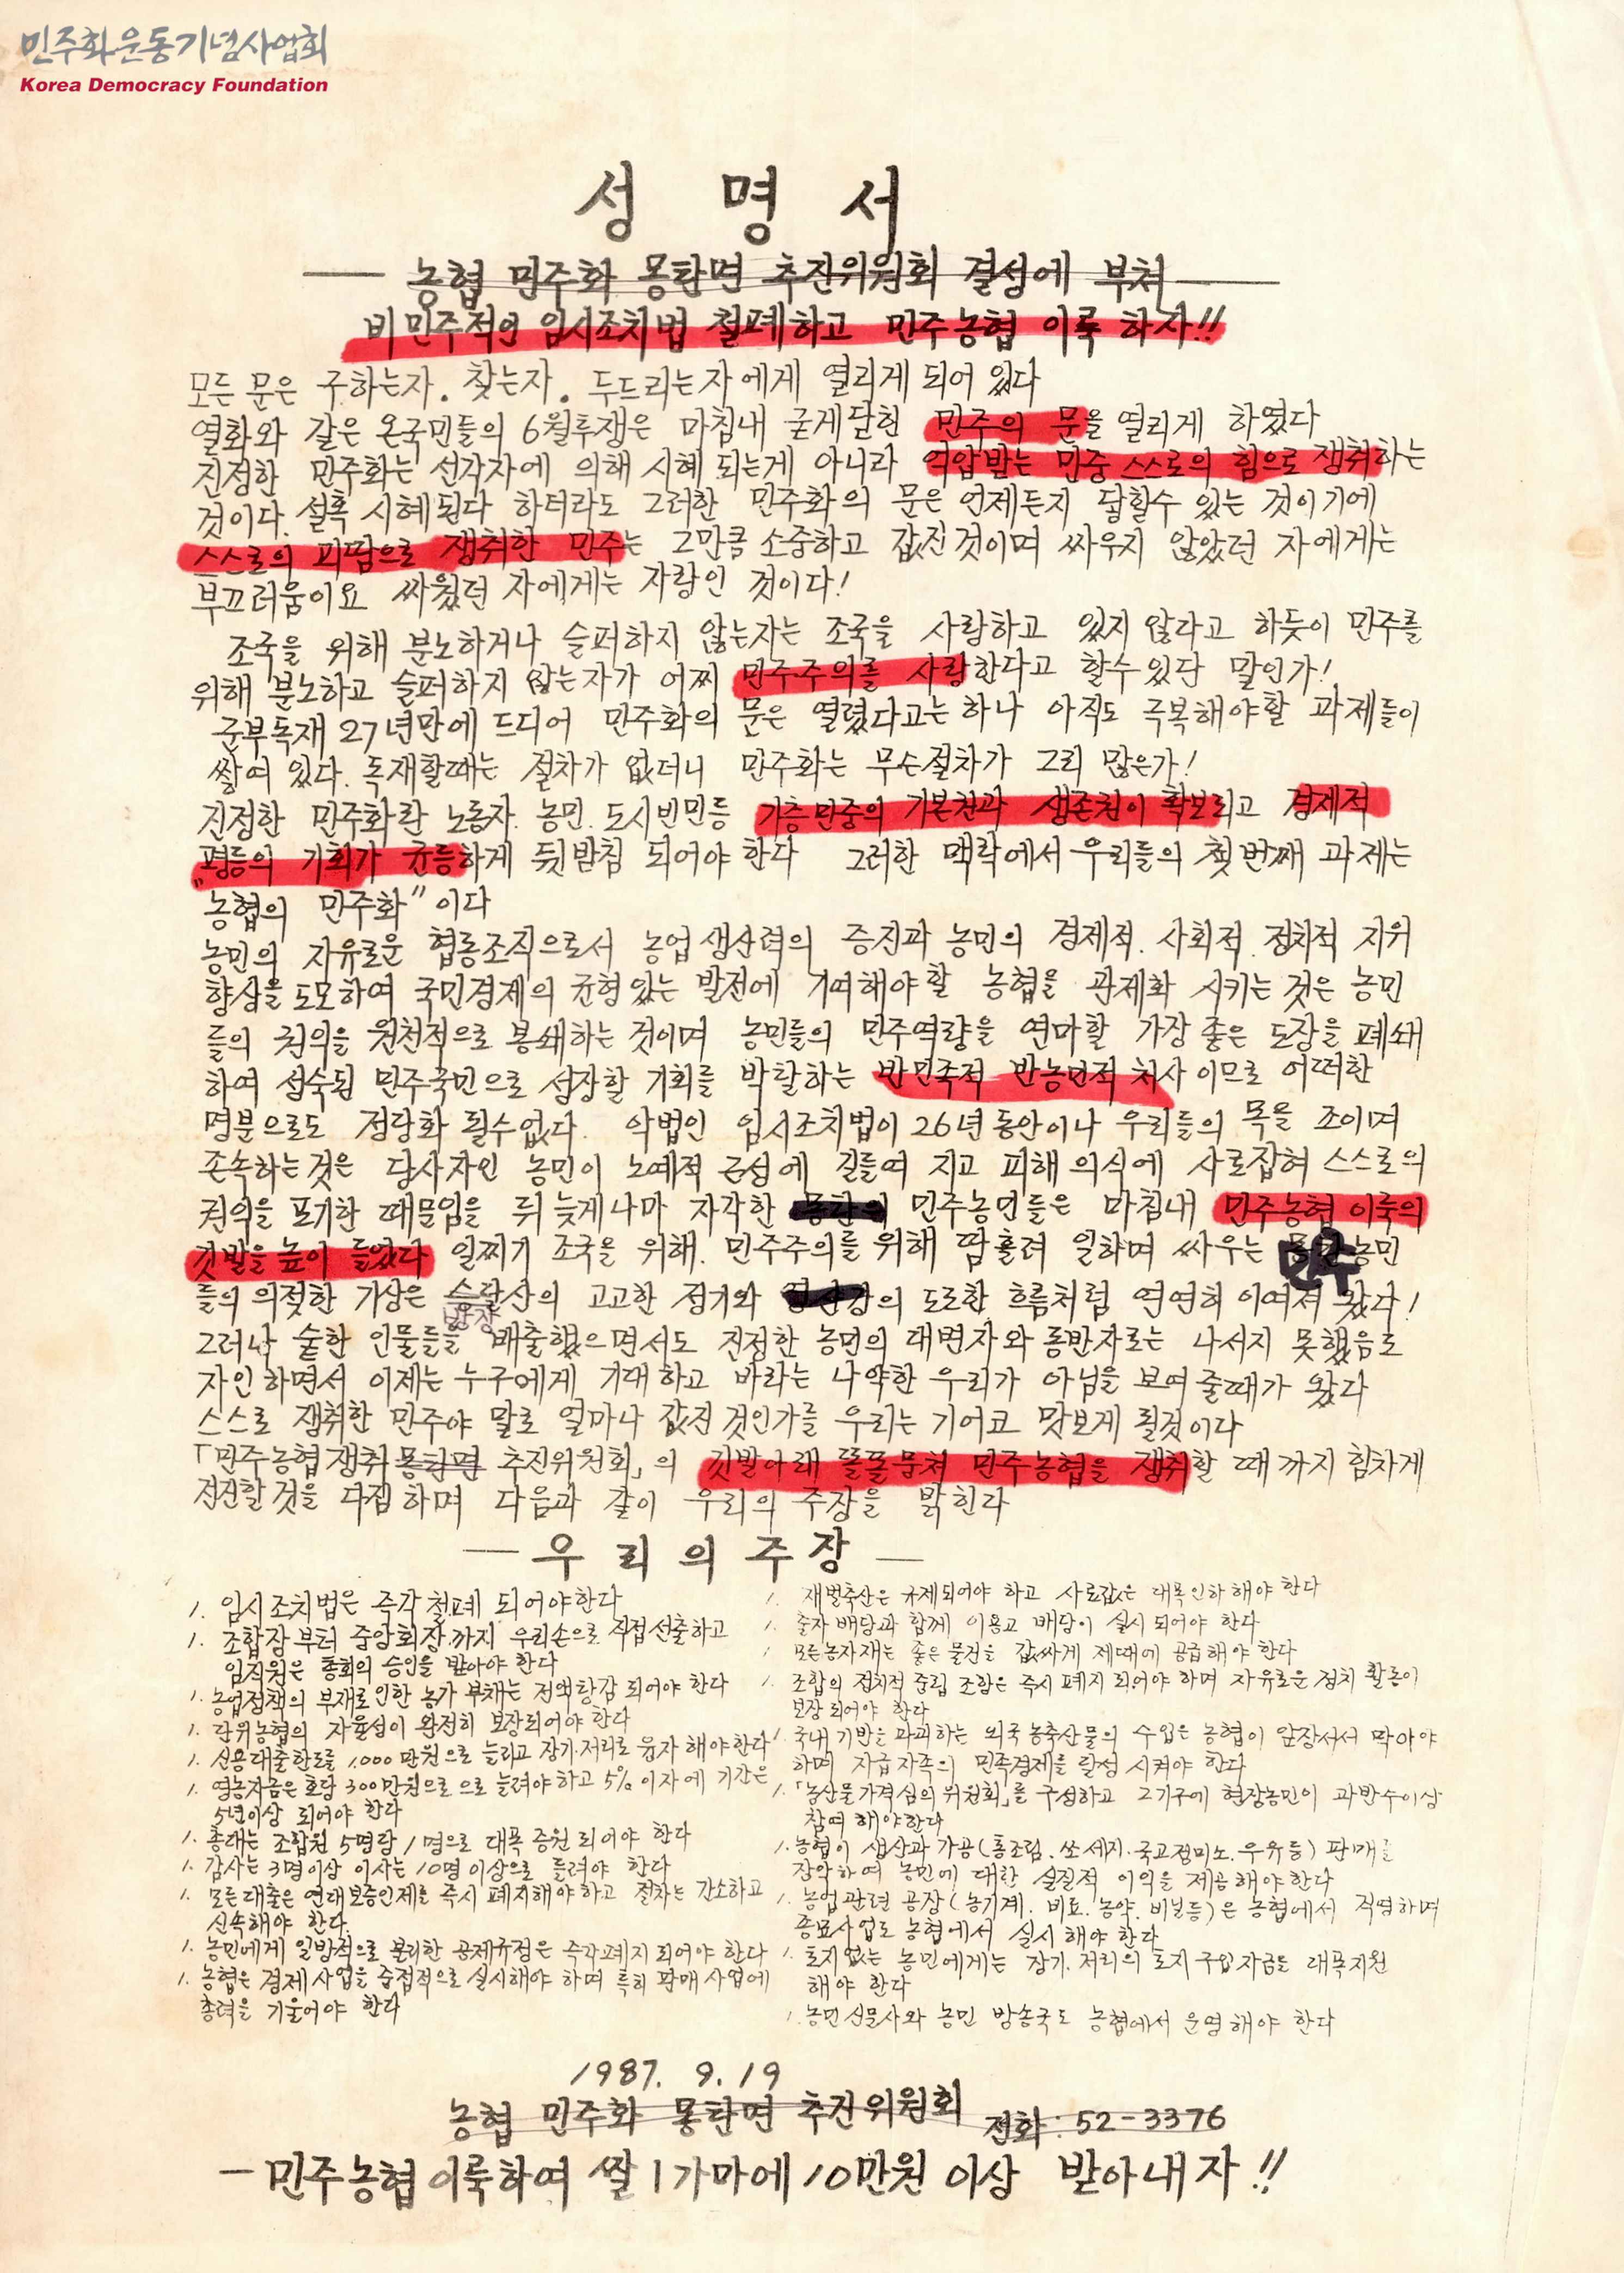 민주화운동기념사업회
Korea Democracy Foundation
성 명 서
농협 민주화 몽탄면 추진위원회 결성에 부쳐
비민주적인 임시조치법 철폐하고 민주농협 이룩 하자!!
모든 문은 구하는자. 찾는자. 두드리는자에게 열리게 되어 있다
열화와 같은 온국민들의 6월투쟁은 마침내 굳게닫힌 민주의 문을 열리게 하였다
진정한 민주화는 선각자에 의해 시혜 되는게 아니라 억압받는 민중 스스로의 힘으로 쟁취하는
것이다. 설혹 시혜된다 하더라도 그러한 민주화의 문은 언제든지 닫힐수 있는 것이기에
스스로의 피땀으로 쟁취한 민주는 그만큼 소중하고 값진것이며 싸우지 않았던 자에게는
부끄러움이요 싸웠던 자에게는 자랑인 것이다!
조국을 위해 분노하거나 슬퍼하지 않는자는 조국을 사랑하고 있지 않다고 하듯이 민주를
위해 분노하고 슬퍼하지 않는자가 어찌 민주주의를 사랑한다고 할수있단 말인가!
군부독재 27년만에 드디어 민주화의 문은 열렸다고는하나 아직도 극복해야할 과제들이
쌓여 있다. 독재할때는 절차가 없더니 민주화는 무슨절차가 그리 많은가!
진정한 민주화란 노동자. 농민. 도시빈민등 기층민중의 기본권과 생존권이 확보되고 경제적
평등의 기회가 균등하게 뒷받침 되어야 한다 그러한 맥락에서 우리들의 첫번째 과제는
"농협의 민주화"이다
농민의 자유로운 협동조직으로서 농업생산력의 증진과 농민의 경제적. 사회적. 정치적 지위
향상을 도모하여 국민경제의 균형있는 발전에 기여해야할 농협을 관제화 시키는 것은 농민
들의 권익을 원천적으로 봉쇄하는 것이며 농민들의 민주역량을 연마할 가장 좋은 도장을 폐쇄
하여 성숙된 민주국민으로 성장할 기회를 박탈하는 반민족적 반농민적 처사 이므로 어떠한
명분으로도 정당화 될수없다. 악법인 임시조치법이 26년동안이나 우리들의 목을 조이며
존속하는것은 당사자인 농민이 노예적 근성에 길들여 지고 피해의식에 사로잡혀 스스로의
권익을 포기한 때문임을 뒤늦게나마 자각한 몽탄의 민주농민들은 마침내 민주농협 이룩의
깃발을 높이 들었다 일찌기 조국을 위해. 민주주의를 위해 땀흘려 일하며 싸우는 민주농민
들의 의젓한 기상은 승달산의 고고한 정기와 영산강의 도도한 흐름처럼 연연히 이여져 왔다!
그러나 숱한 인물들을 배출했으면서도 진정한 농민의 대변자와 동반자로는 나서지 못했음을
자인하면서 이제는 누구에게 기대하고 바라는 나약한 우리가 아님을 보여줄때가 왔다
스스로 쟁취한 민주야 말로 얼마나 값진 것인가를 우리는 기어코 맛보게 될것이다
「민주농협쟁취 몽탄면 추진위원회」의 깃발아래 똘똘뭉쳐 민주농협을 쟁취할 때까지 힘차게
전진할것을 다짐하며 다음과 같이 우리의 주장을 밝힌다
우 리 의 주 장
1. 임시조치법은 즉각 철폐 되어야한다
1. 조합장부터 중앙회장까지 우리손으로 직접선출하고
임직원은 총회의 승인을 받아야 한다
1. 농업정책의 부재로인한 농가 부채는 전액탕감 되어야 한다
1. 단위농협의 자율성이 완전히 보장되어야 한다
1. 신용대출한도를 1,000만원으로 늘리고 장기.저리로 융자해야한다
1. 영농자금은 호당 300만원으로 으로 늘려야하고 5% 이자에 기간은
5년이상 되어야 한다
1. 총대는 조합원 5명당 1명으로 대폭 증원되어야 한다
1. 감사는 3명이상 이사는 10명이상으로 늘려야 한다
1. 모든대출은 연대보증인제를 즉시 폐지해야하고 절차는 간소하고
신속해야 한다.
1. 농민에게 일방적으로 불리한 공제규정은 즉각폐지 되어야 한다
1. 농협은 경제사업을 중점적으로 실시해야 하며 특히 판매사업에
총력을 기울어야 한다
1. 재벌축산은 규제되어야 하고 사료값은 대폭인하 해야 한다
1. 출자배당과 함께 이용고 배당이 실시되어야 한다
1. 모든농자재는 좋은 물건을 값싸게 제때에 공급해야 한다
1. 조합의 정치적 중립 조항은 즉시 폐지 되어야 하며 자유로운 정치 활동이
보장 되어야 한다
1. 국내기반을 파괴하는 외국농축산물의 수입은 농협이 앞장서서 막아야
하며 자급자족의 민족경제를 달성 시켜야 한다
1. 「농산물가격심의위원회」를 구성하고 그기구에 현장농민이 과반수이상
참여 해야한다
1. 농협이 생산과 가공(통조림. 쏘세지. 국고정미소. 우유등) 판매를
장악하여 농민에 대한 실질적 이익을 제공해야 한다
1. 농업관련 공장(농기계. 비료. 농약. 비닐등)은 농협에서 직영하며
종묘사업도 농협에서 실시해야 한다
1. 토지없는 농민에게는 장기.저리의 토지구입자금을 대폭지원
해야 한다
1. 농민신문사와 농민 방송국도 농협에서 운영해야 한다
1987. 9. 19
농협 민주화 몽탄면 추진위원회 전화: 52-3376
민주농협이룩하여 쌀1가마에 10만원 이상 받아내자!!